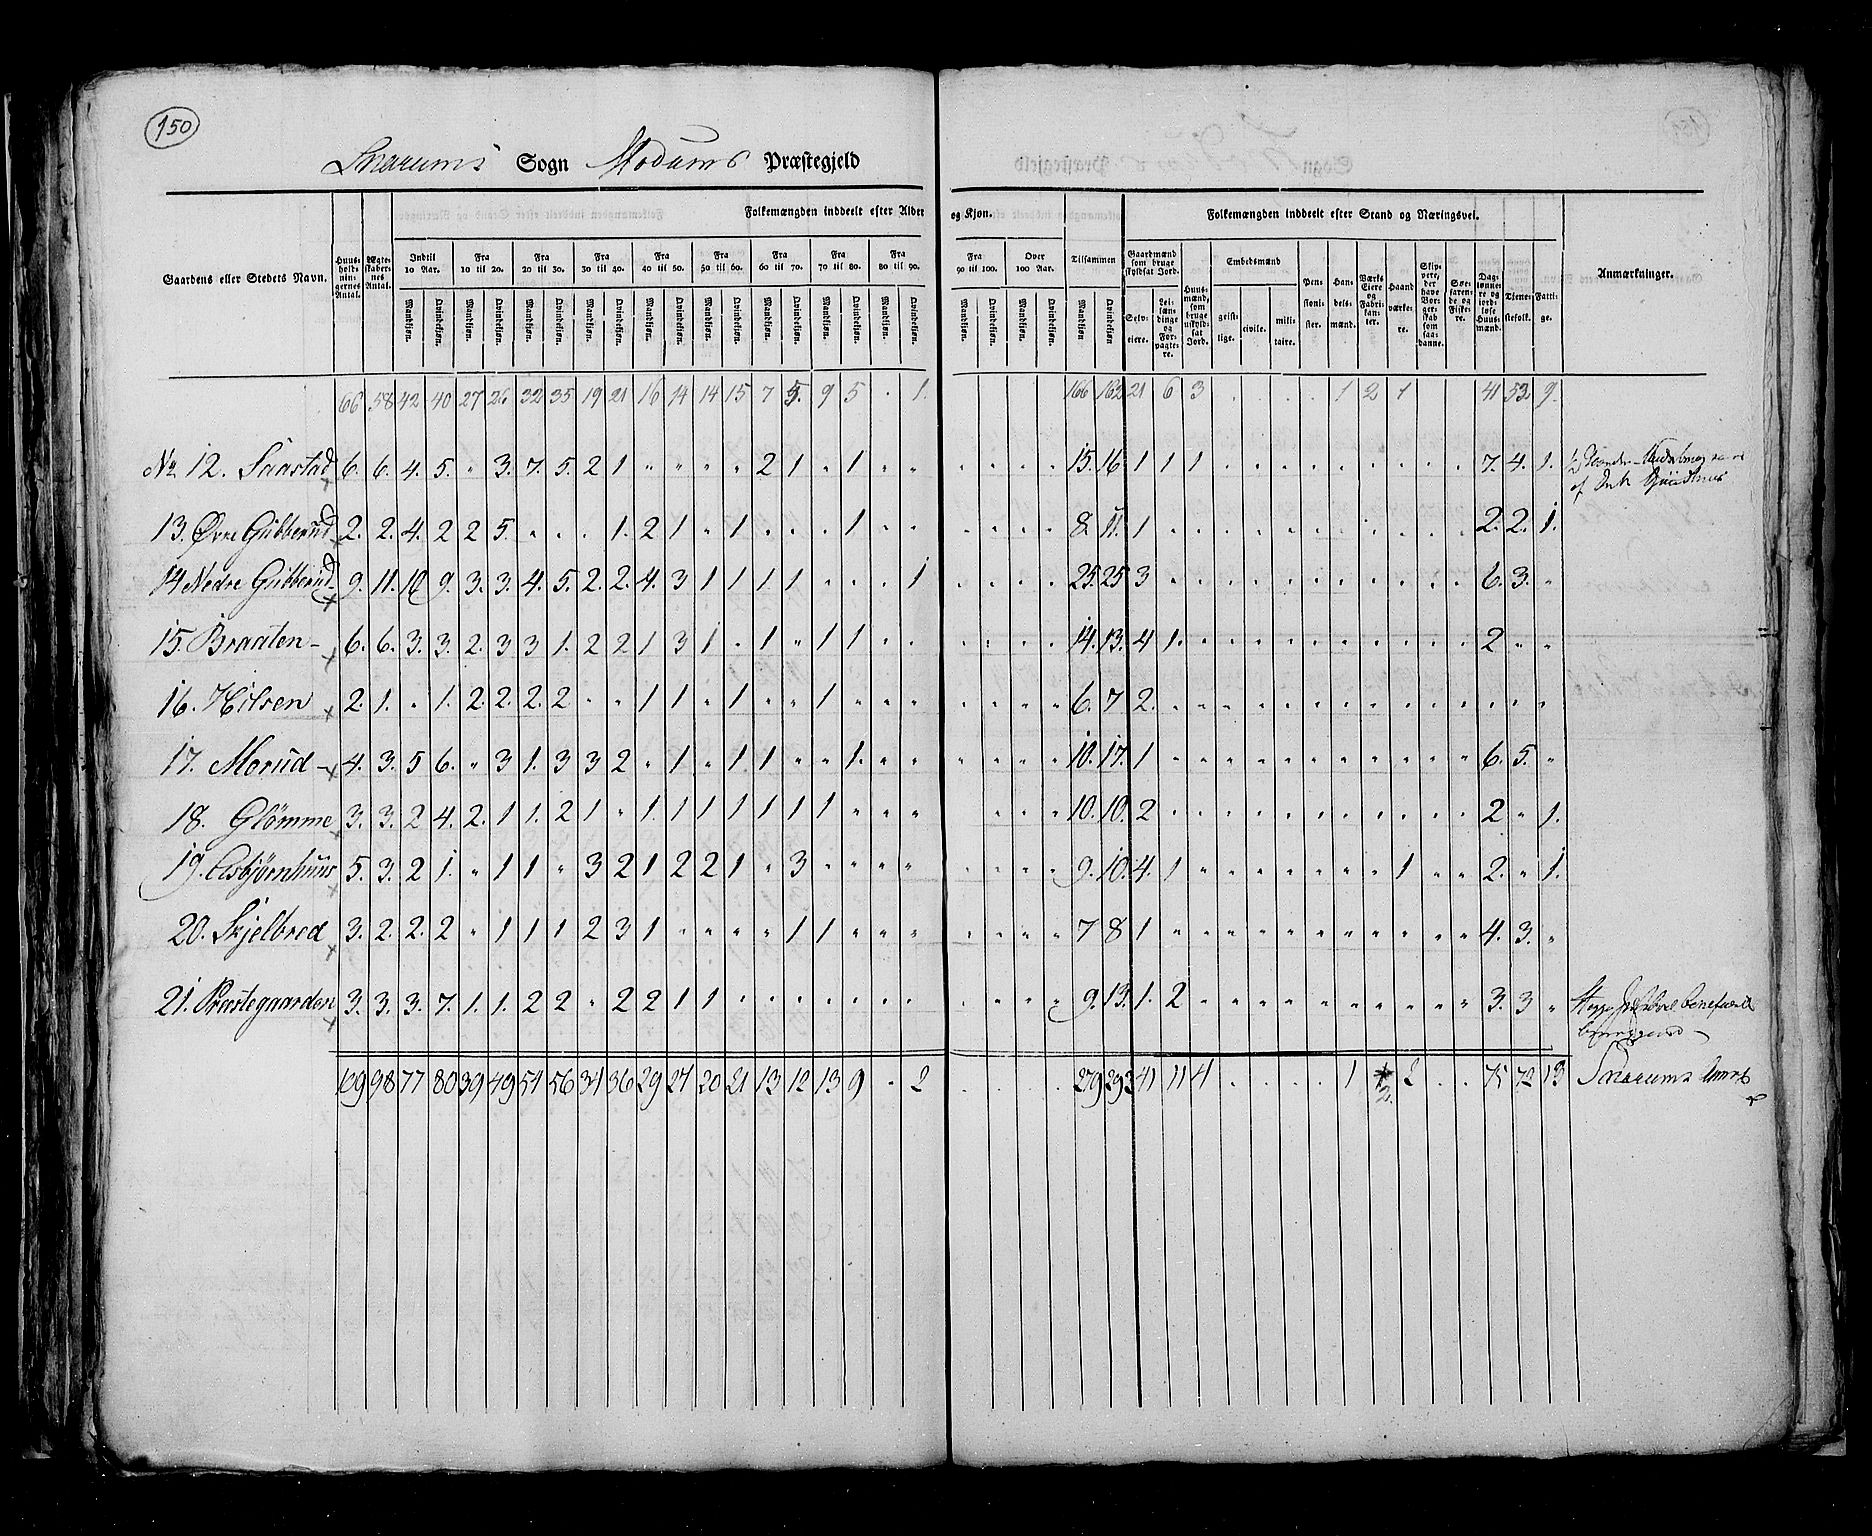 150
Snarums Sogn Modums Præstegjeld
Folkemængden inddeelt efter Alder og Kjøn. Folkemængden inddeelt efter Stand og Næringsvei.
Gaardens eller Stedets Navn. Huusholdningernes Antal. Ægteskabernes Antal. Indtil 10 Aar. Fra 10 til 20. Fra 20 til 30. Fra 30 til 40. Fra 40 til 50. Fra 50 til 60. Fra 60 til 70. Fra 70 til 80. Fra 80 til 90. Fra 90 til 100. Over 100 Aar. Tilsammen Gaardmænd som bruge skyldsat Jord. Huusmænd, som bruge uskyldsat Jord. Embedsmænd Pensionister. Handelsmænd. Værks Eiere og Fabrikanter. Haandværkere. Skippere, der have Borgerskab som saadanne. Søefarende og Fiskere. Daglønnere og jordløse Huusmænd. Tjenestefolk. Fattige. Anmærkninger.
Mandkjøn. Qvindekjøn. Mandkjøn. Qvindekjøn. Mandkjøn. Qvindekjøn. Mandkjøn. Qvindekjøn. Mandkjøn. Qvindekjøn. Mandkjøn. Qvindekjøn. Mandkjøn. Qvindekjøn. Mandkjøn. Qvindekjøn. Mandkjøn. Qvindekjøn. Mandkjøn. Qvindekjøn. Mandkjøn. Qvindekjøn. Mandkjøn. Qvindekjøn Selveiere. Leilændinge og Forpagtere. geistlige. civile. militaire.
66 58 42 40 27 26 32 35 19 21 16 14 14 15 7 5. 9 5 . 1. . . . . 166 162 21 6 3 . . . . 1 2 1 . . 41 53 9.
No 12. Saastad 6. 6. 4. 5. " 3. 7. 5. 2 1 " " " " 2 1 " 1 " " " " " " 15. 16 1 1 1 " " " " " " " " " 7. 4. 1.
13. Øvre Gubberud 2. 2. 4. 2 2 5. " " " 1. 2 1 " 1 " " " 1 " " " " " " 8. 11. 1 " " " " " " " " " " " 2. 2. 1.
14 Nedre Gubberud 9. 11. 10 9. 3. 3. 4. 5. 2. 2. 4. 3 1 1 1 1 " " " 1 " " " " 25. 25 3 " " " " " " " " " " " 6. 3. "
15. Braaten - 6. 6. 3. 3. 2. 3 3 1. 2 2 1 3 1 " 1 " 1 1 " " " " " " 14. 13. 4 1. " " " " " " " " " " 2 " "
16. Hilsen 2. 1. " 1. 2. 2. 2. 2 " " 1 1 " 1 " " 1 " " " " " " " 6. 7 2. " " " " " " " " " " " " " "
17. Morud - 4. 3. 5 6. " 3 1. 3 3 2 " 1 " 1. 1 " " 1. " " " " " " 10. 17. 1 " " " " " " " " " " " 6. 5. "
18. Glömme 3. 3. 2 4. 2. 1 1. 2 1 " 1. 1 1 1 1 1 1 " " " " " " 10. 10. 2 " " " " " " " " " " " 2 " 1.
19. Asbjørnhuus 5. 3. 2 1. " 1 1 " 3 2 1 2 2 1 " 3 " " " " " " " " 9. 10. 4. 1 " " " " " " " 1 " " 2. " 1.
20. Skjelbred 3. 2. 2. 2 " 1 1 1 2 3 1 " " " " 1 1 " " " " " " " 7 8 1 " " " " " " " " " " " 4. 3. "
21. Præstegaarden 3. 3. 3. 7. 1. 1. 2 2 " 2 2 1 1 " " " " " " " " " " " 9. 13. 1. 2 " " " " " " " " " " 3. 3 "
109 98 77 80 39 49 54 56 34 36 29 27 20 21 13 12 13 9 . 2 . . . . 279 293 41 11 4 . . . . 1 2. 2 . . 75 73 13 Snarums Annex